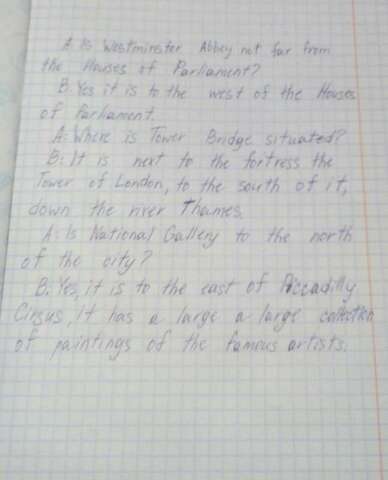 A: Is Westminster Abbey not far from
the Houses of Parliament?
B: Yes it is to the west of the Houses
of Parliament.
A: Where is Tower Bridge situated?
B: It is next to the fortress the
Tower of London, to the south of it,
down the river Thames.
A: Is National Gallery to the north
of the city?
B: Yes, it is to the east of Piccadilly
Cirsus, it has a large a large collection
of paintings of the famous artists.